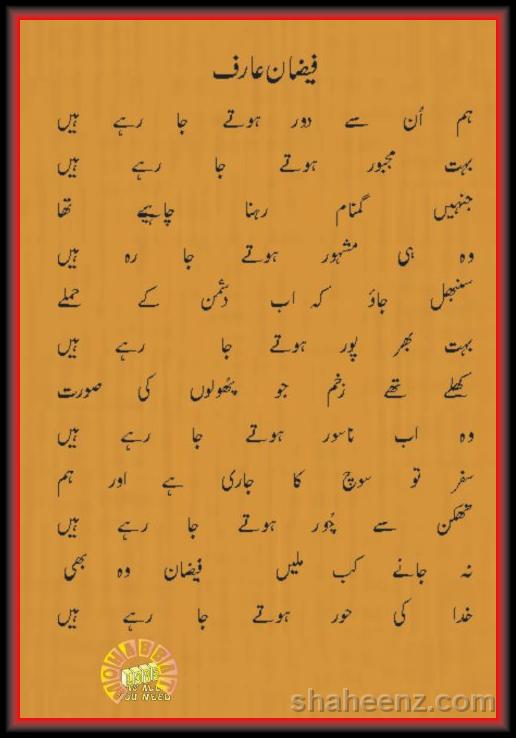 فیضان عارف
ہم اُن سے دور ہوتے جا رہے ہیں
بہت مجبور ہوتے جا رہے ہیں
جنہیں گمنام رہنا چاہیے تھا
وہ ہی مشہور ہوتے جا رہ ہیں
سنبھل جاؤ کہ اب دشمن کے حملے
بہت بھر پور ہوتے جا رہے ہیں
کھلے تھے زخم جو پھولوں کی صورت
وہ اب ناسور ہوتے جا رہے ہیں
سفر تو سوچ کا جاری ہے اور ہم
تھکن سے چُور ہوتے جا رہے ہیں
نہ جانے کب ملیں فیضان وہ بھی
خدا کی حور ہوتے جا رہے ہیں
LOVE
IS ALL
YOU NEED
shaheenz.com